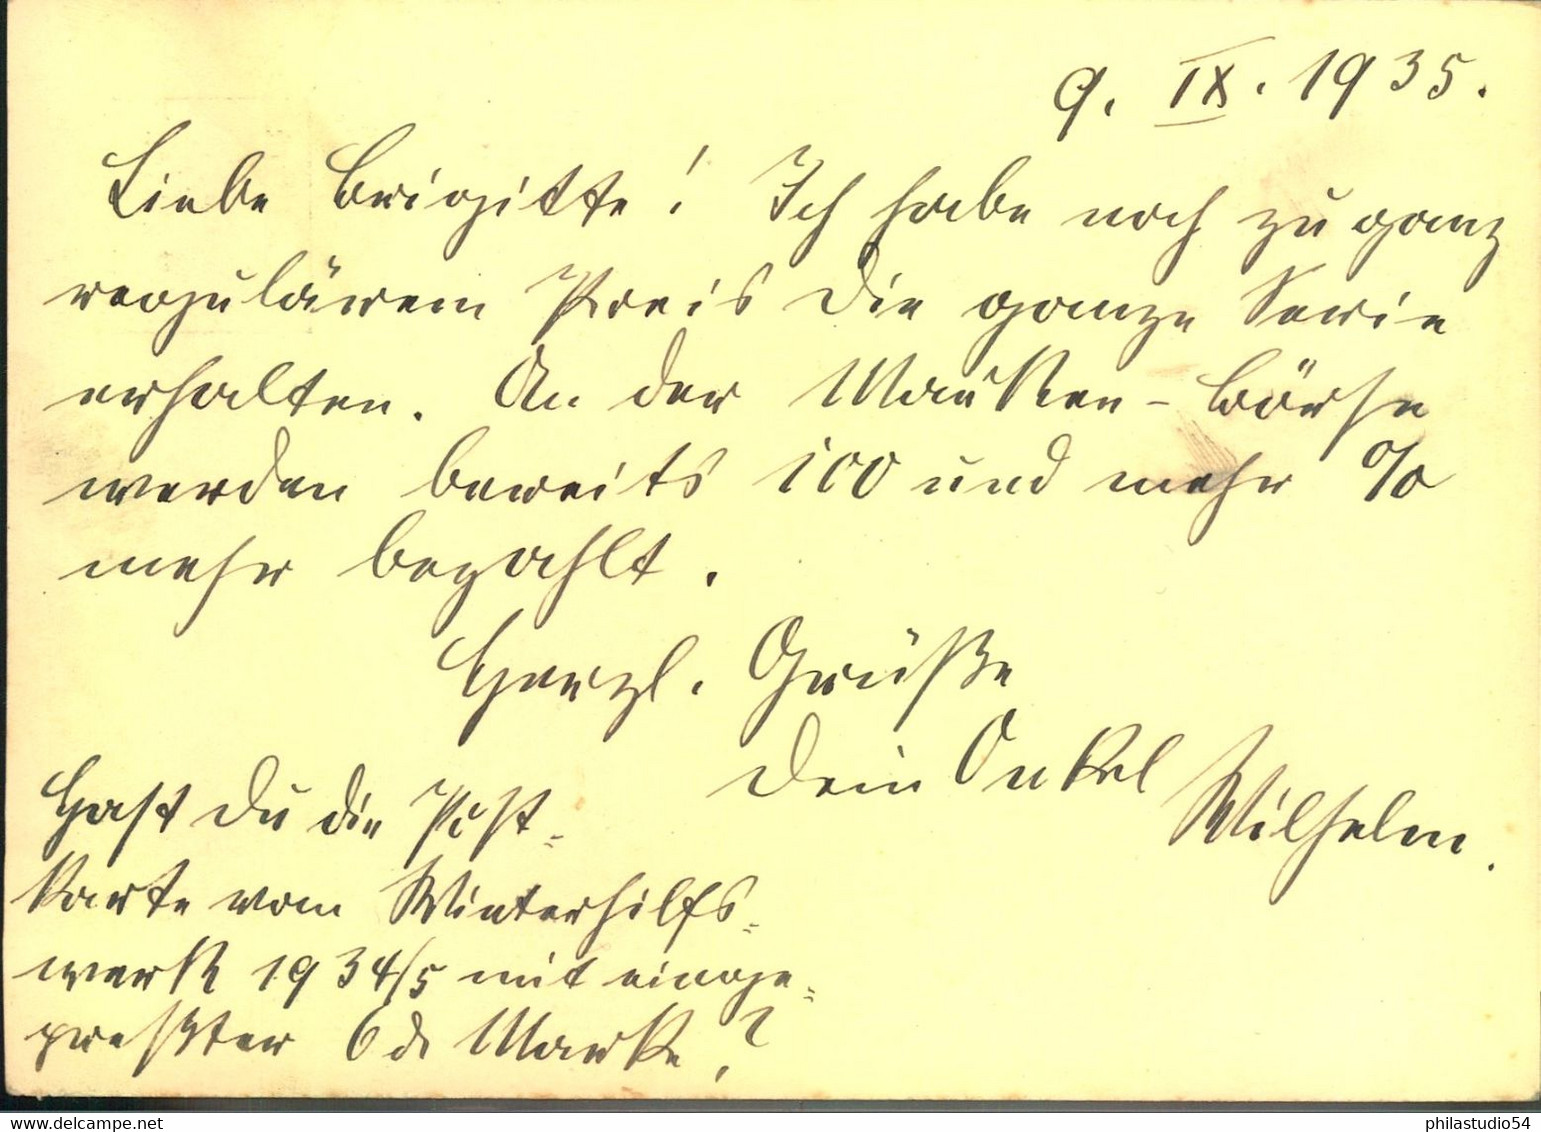 9. IX. 1935.
Liebe Brigitte! Ich habe noch zu ganz
regulärem Preis die ganze Serie
erhalten. An der Marken-Börse
werden bereits 100 und mehr %
mehr bezahlt.
Herzl. Grüße
Dein Onkel Wilhelm.
Hast du die Post-
karte vom Winterhilfs-
werk 1934/5 mit einge-
preßter 6 d Marke?
www.delcampe.net
philastudio54